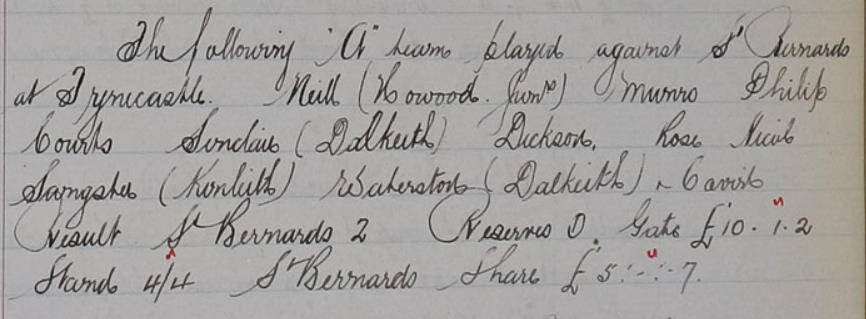 The following "A" team played against St Bernards
at Tynecastle. Neill (Howood. Junrs) Munro Philip
Couts Sinclair (Dalkeith) Dickson, Rose Nicol
Sangster (Kinleith) Waterston (Dalkeith) & Cavin
Result St Bernards 2 Reserves 0. Gate £10. 1. 2
Stand 4/4 St Bernards Share £5:-:-7.